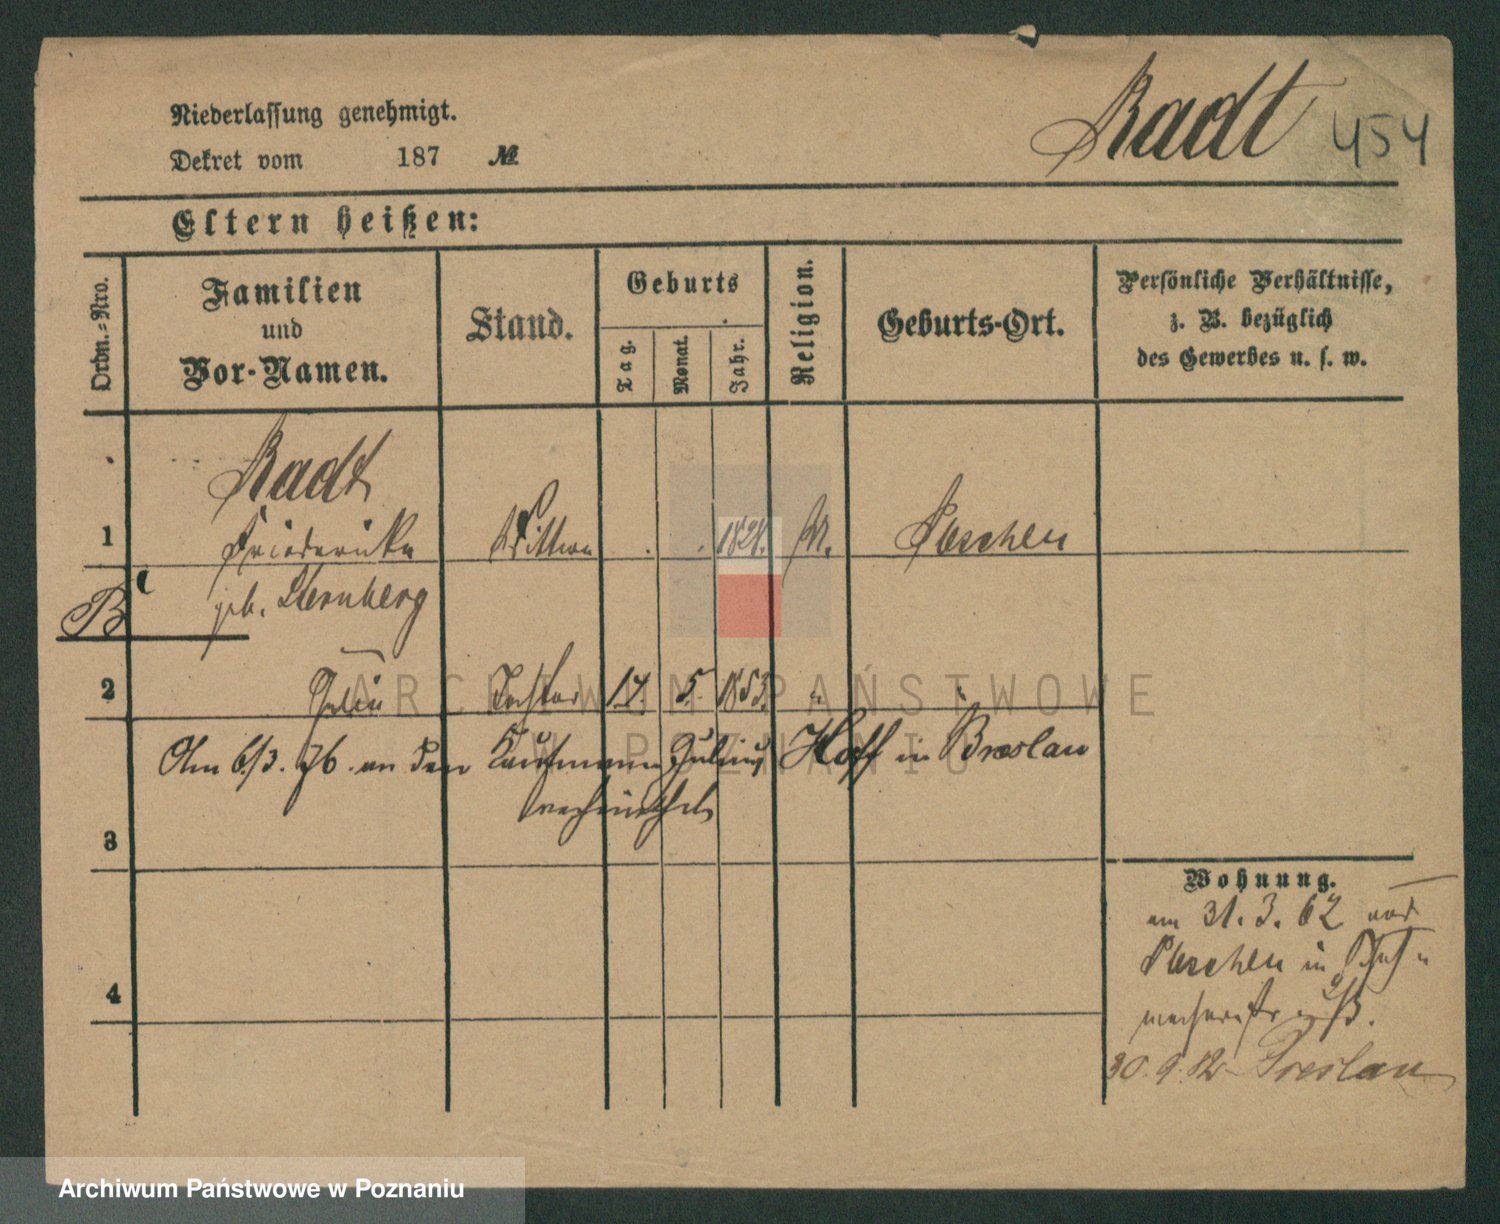 Niederlassung genehmigt.
Radt 454
Dekret vom 187 №
Eltern heißen:
Ordn.=Nro.
Familien
und
Vor-Namen.
Stand.
Geburts
Tag.
Monat.
Jahr.
Religion.
Geburts-Ort.
Persönliche Verhältnisse,
z. B. bezüglich
des Gewerbes u. s. w.
Radt
1 Friederike Wittwe 1821. M. Pleschen
B geb. Sternberg
2 Tochter 17. 5. 1853. "
Am 6/3. 76. an den Kaufmann Julius Hoff in Breslau
verheirathet
3
Wohnung.
am 31. 3. 62 von
Pleschen in
4
30. 9. 82 Breslau
ARCHIWUM PAŃSTWOWE
W POZNANIU
Archiwum Państwowe w Poznaniu